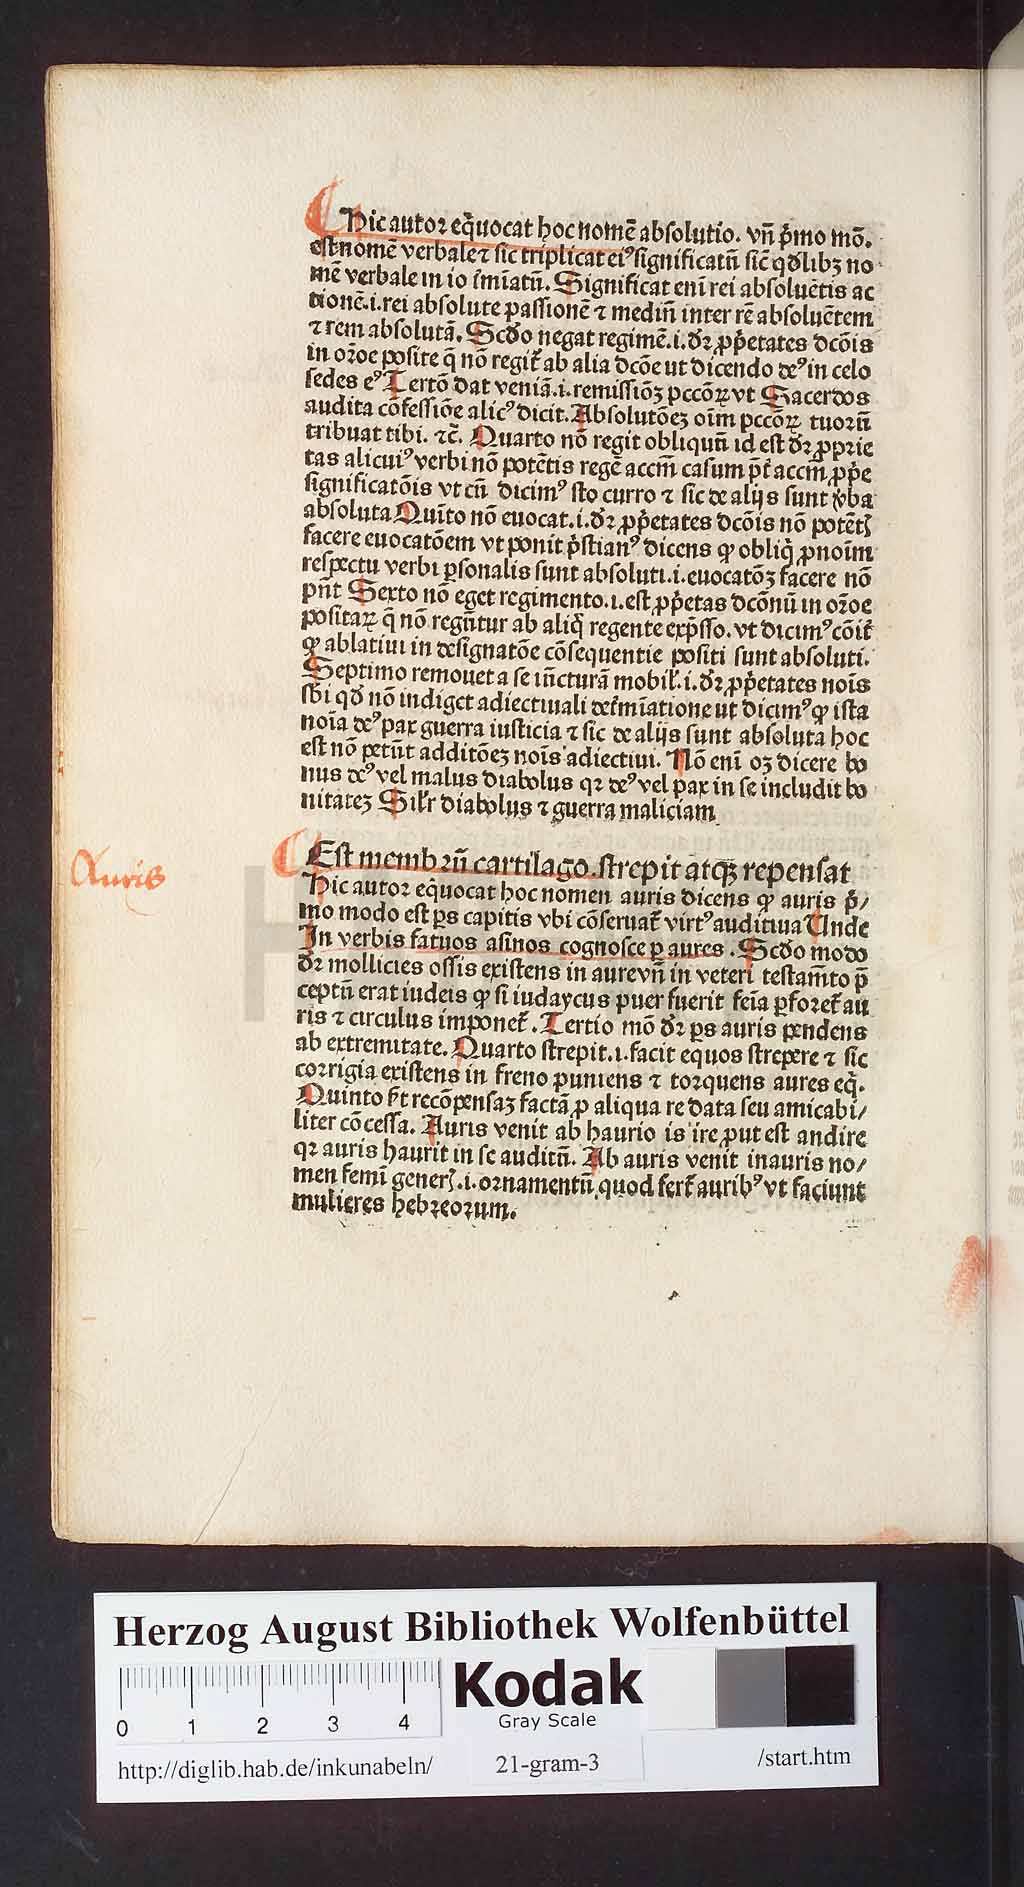 Hic autor eq̄uocat hoc nomē absolutio. vn̄ p̄mo mō.
est nomē verbale ⁊ sic triplicat eiꝰ significatū sic̄ qđlibꝫ no
mē verbale in io īmīatū. Significat eni rei absoluētis ac
tionē.i.rei absolute passionē ⁊ mediū inter rē absoluētem
⁊ rem absolutā. Scđo negat regimē.i.dr̄ ꝓp̄etates dcōis
in or̄oe posite q̄ nō regit̄ ab alia dcōe ut dicendo deꝰ in celo
sedes eꝰ Tertō dat veniā.i.remissiōꝫ pccōꝝ vt Sacerdos
audita cōfessiōe alicꝰ dicit. Absolutōeꝫ oīm pccōꝝ tuorū
tribuat tibi. ⁊c̄. Quarto nō regit obliquū id est dr̄ ꝓprie
tas alicuiꝰ verbi nō potētis regē accm̄ casum p̄t accm̄ ꝓp̄e
significatōis vt cū dicimꝰ sto curro ⁊ sic de alijs sunt v̄ba
absoluta Quīto nō euocat.i.dr̄ ꝓp̄etates dcōis nō potēt
facere euocatōem vt ponit p̄stianꝰ dicens ꝙ obliq̄ ꝓnoīm
respectu verbi ꝑsonalis sunt absoluti.i.euocatōꝫ facere nō
pn̄t Sexto nō eget regimento.i.est ꝓp̄etas dcōnū in or̄oe
positaꝝ q̄ nō regūtur ab aliq̄ regente exp̄sso. vt dicimꝰ cōit̄
ꝙ ablatiui in designatōe cōsequentie positi sunt absoluti.
Septimo remouet a se iūcturā mobil̄.i.dr̄ ꝓp̄etates noīs
sb̄i qđ nō indiget adiectiuali det̄mīatione ut dicimꝰ ꝙ ista
noīa deꝰ pax guerra iusticia ⁊ sic de alijs sunt absoluta hoc
est nō petūt additōeꝫ noīs adiectiui. Nō eni oꝫ dicere bo
nus deꝰ vel malus diabolus qꝛ deꝰ vel pax in se includit bo
nitateꝫ Sil̄r diabolus ⁊ guerra maliciam
Auris
Est membrū cartilago strepit atqꝫ repensat
Hic autor equocat hoc nomen auris dicens ꝙ auris p̄/
mo modo est ps capitis vbi cōseruat̄ virtꝰ auditiua Unde
In verbis fatuos asinos cognosce ꝑ aures. Scđo modo
dr̄ mollicies ossis existens in aure vn̄ in veteri testam̄to p̄
ceptū erat iudeis ꝙ si iudaycus puer fuerit feīa ꝑforet̄ au
ris ⁊ circulus imponet̄. Tertio mō dr̄ ps auris pendens
ab extremitate. Quarto strepit.i.facit equos strepere ⁊ sic
corrigia existens in freno puniens ⁊ torquens aures eq̄.
Quinto f̄t recōpensaꝫ factā ꝓ aliqua re data seu amicabi/
liter cōcessa. Auris venit ab haurio is ire ꝓut est andire
qꝛ auris haurit in se auditū. Ab auris venit inauris no/
men femī gener̄.i.ornamentū quod fert̄ auribꝰ vt faciunt
mulieres hebreorum.
Herzog August Bibliothek Wolfenbüttel
0 1 2 3 4
Kodak
Gray Scale
http://diglib.hab.de/inkunabeln/ 21-gram-3 /start.htm